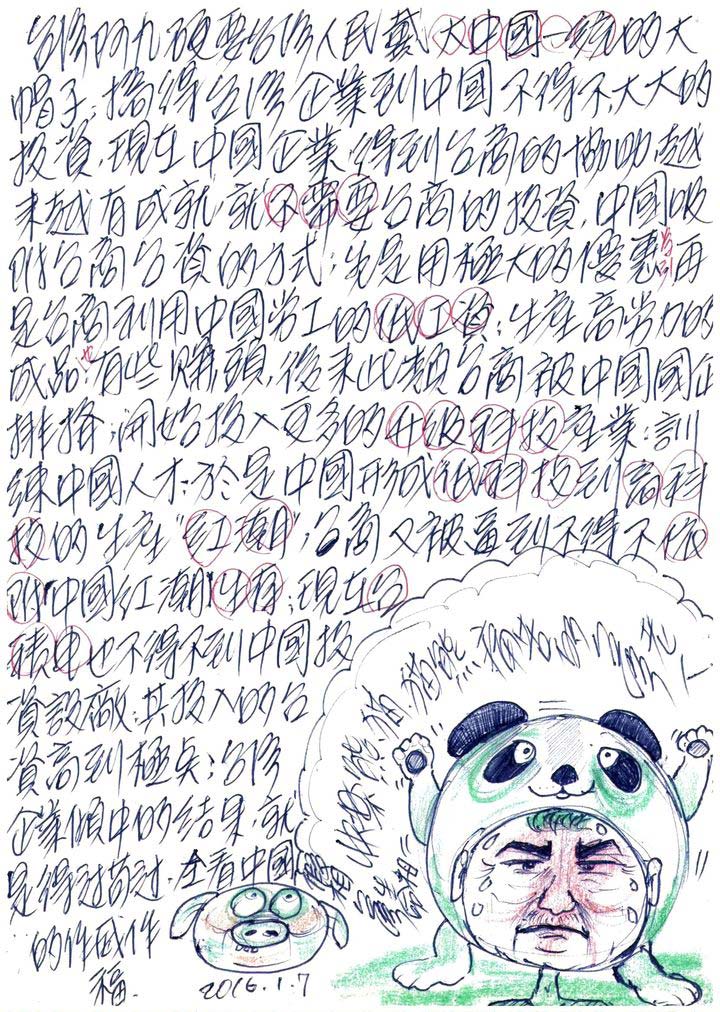 台灣阿九硬要台灣人民戴大中國一統的大
帽子;搞得台灣企業到中國不得不大大的
投資,現在中國企業得到台商的協助,越
來越有成就,就不需要台商的投資,中國吸
附台商台資的方式:先是用極大的優惠吸引再
是台商利用中國勞工的低工資;生產高勞力的
成品;也有些賺頭,後來此類台商被中國國企
排擠;開始投入更多的升級科技產業;訓
練中國人才;於是中國形成低科技到高科
技的生產“紅潮”,台商又被逼到不得不依
附中國紅潮生存;現在台
積電也不得不到中國投
資設廠;其投入的台
資高到極點;台灣
企業傾中的結果,就
是得過苟過,全看中國
的作威作
福.
2016.1.7